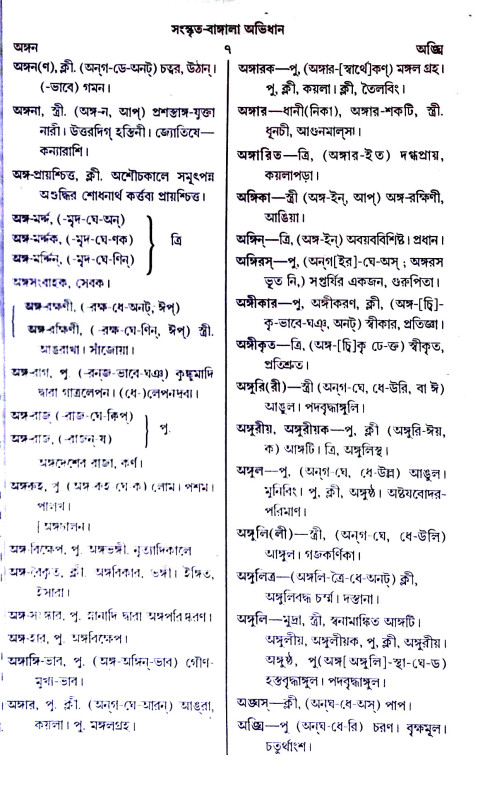 সংস্কৃত-বাঙ্গালা অভিধান
অঙ্গন
৭
অঙ্ঘ্রি
অঙ্গন(ণ), ক্লী. (অন্‌গ-ডে-অনট্) চত্বর, উঠান।
(-ভাবে) গমন।
অঙ্গনা, স্ত্রী. (অঙ্গ-ন, আপ্) প্রশস্তাঙ্গ-যুক্তা
নারী। উত্তরদিগ্ হস্তিনী। জ্যোতিষে—
কন্যারাশি।
অঙ্গ-প্রায়শ্চিত্ত, ক্লী. অশৌচকালে সমুৎপন্ন
অশুদ্ধির শোধনার্থ কর্ত্তব্য প্রায়শ্চিত্ত।
অঙ্গ-মর্দ্দ, (-মৃদ-ঘে-অন্)
অঙ্গ-মর্দ্দক, (-মৃদ-ঘে-ণক)
ত্রি
অঙ্গ-মর্দ্দিন্, (-মৃদ-ঘে-ণিন্)
অঙ্গসংবাহক, সেবক।
অঙ্গ-রক্ষণী, (-রক্ষ-ধে-অনট্, ঈপ্)
অঙ্গ-রক্ষিণী, (-রক্ষ-ঘে-ণিন্, ঈপ্) স্ত্রী.
আঙরাখা। সাঁজোয়া।
অঙ্গ-রাগ, পু (-রন্‌জ-ভাবে-ঘঞ্) কুঙ্কুমাদি
দ্বারা গাত্রলেপন। (ধে-)লেপনদ্রব্য।
অঙ্গ-রাজ্ (-রাজ-ঘে-ক্বিপ্)
পু.
অঙ্গ-রাজ, (-রাজন্-য)
অঙ্গদেশের রাজা, কর্ণ।
অঙ্গরুহ, পু (অঙ্গ-রুহ ঘে-ক) লোম। পশম।
পালখ।
অঙ্গ-বিক্ষেপ, পু. অঙ্গভঙ্গী. নৃত্যাদিকালে
অঙ্গ-বৈকৃত, ক্লী. অঙ্গবিকার, ভঙ্গী। ইঙ্গিত,
ইসারা।
অঙ্গ-সংস্কার, পু. স্নানাদি দ্বারা অঙ্গপরিষ্করণ।
অঙ্গ-হার, পু. অঙ্গবিক্ষেপ।
অঙ্গাঙ্গি-ভাব, পু. (অঙ্গ-অঙ্গিন্-ভাব) গৌণ-
মুখ্য-ভাব।
অঙ্গার, পু. ক্লী. (অন্‌গ-ঘে-আরন্) আঙরা,
কয়লা। পু. মঙ্গলগ্রহ।
অঙ্গারক—পু, (অঙ্গার-[স্বার্থে]কণ্) মঙ্গল গ্রহ।
পু, ক্লী, কয়লা। ক্লী, তৈলবিং।
অঙ্গার—ধানী(নিকা), অঙ্গার-শকটি, স্ত্রী.
ধূনচী, আগুনমাল্সা।
অঙ্গারিত—ত্রি, (অঙ্গার-ইত) দগ্ধপ্রায়,
কয়লাপড়া।
অঙ্গিকা—স্ত্রী (অঙ্গ-ইন্, আপ্) অঙ্গ-রক্ষিণী,
আঙিয়া।
অঙ্গিন্—ত্রি, (অঙ্গ-ইন্) অবয়ববিশিষ্ট। প্রধান।
অঙ্গিরস্—পু, (অন্‌গ[ইর]-ঘে-অস্; অঙ্গরস
ভূত নি,) সপ্তর্ষির একজন, গুরুপিতা।
অঙ্গীকার—পু, অঙ্গীকরণ, ক্লী, (অঙ্গ-[চ্বি]-
কৃ-ভাবে-ঘঞ্, অনট্) স্বীকার, প্রতিজ্ঞা।
অঙ্গীকৃত—ত্রি, (অঙ্গ-[চ্বি]কৃ ঢে-ক্ত) স্বীকৃত,
প্রতিশ্রুত।
অঙ্গুরি(রী)—স্ত্রী (অন্‌গ-ঘে, ধে-উরি, বা ঈ)
আঙুল। পদবৃদ্ধাঙ্গুলি।
অঙ্গুরীয়, অঙ্গুরীয়ক—পু, ক্লী (অঙ্গুরি-ঈয়,
ক) আঙ্গটি। ত্রি, অঙ্গুলিস্থ।
অঙ্গুল—পু, (অন্‌গ-ঘে, ধে-উল্ল) আঙুল।
মুনিবিং। পু, ক্লী, অঙ্গুষ্ঠ। অষ্টযবোদর-
পরিমাণ।
অঙ্গুলি(লী)—স্ত্রী, (অন্‌গ-ঘে, ধে-উলি)
আঙ্গুল। গজকর্ণিকা।
অঙ্গুলিত্র—(অঙ্গলি-ত্রৈ-ধে-অনট্) ক্লী,
অঙ্গুলিবদ্ধ চর্ম্ম। দস্তানা।
অঙ্গুলি—মুদ্রা, স্ত্রী, স্বনামাঙ্কিত আঙ্গটি।
অঙ্গুলীয়, অঙ্গুলীয়ক, পু, ক্লী, অঙ্গুরীয়।
অঙ্গুষ্ঠ, পু(অঙ্গ[অঙ্গুলি]-স্থা-ঘে-ড)
হস্তবৃদ্ধাঙ্গুল। পদবৃদ্ধাঙ্গুল।
অঙ্ঘস্—ক্লী, (অন্‌ঘ-ধে-অস্) পাপ।
অঙ্ঘ্রি—পু (অন্‌ঘ-ধে-রি) চরণ। বৃক্ষমূল।
চতুর্থাংশ।